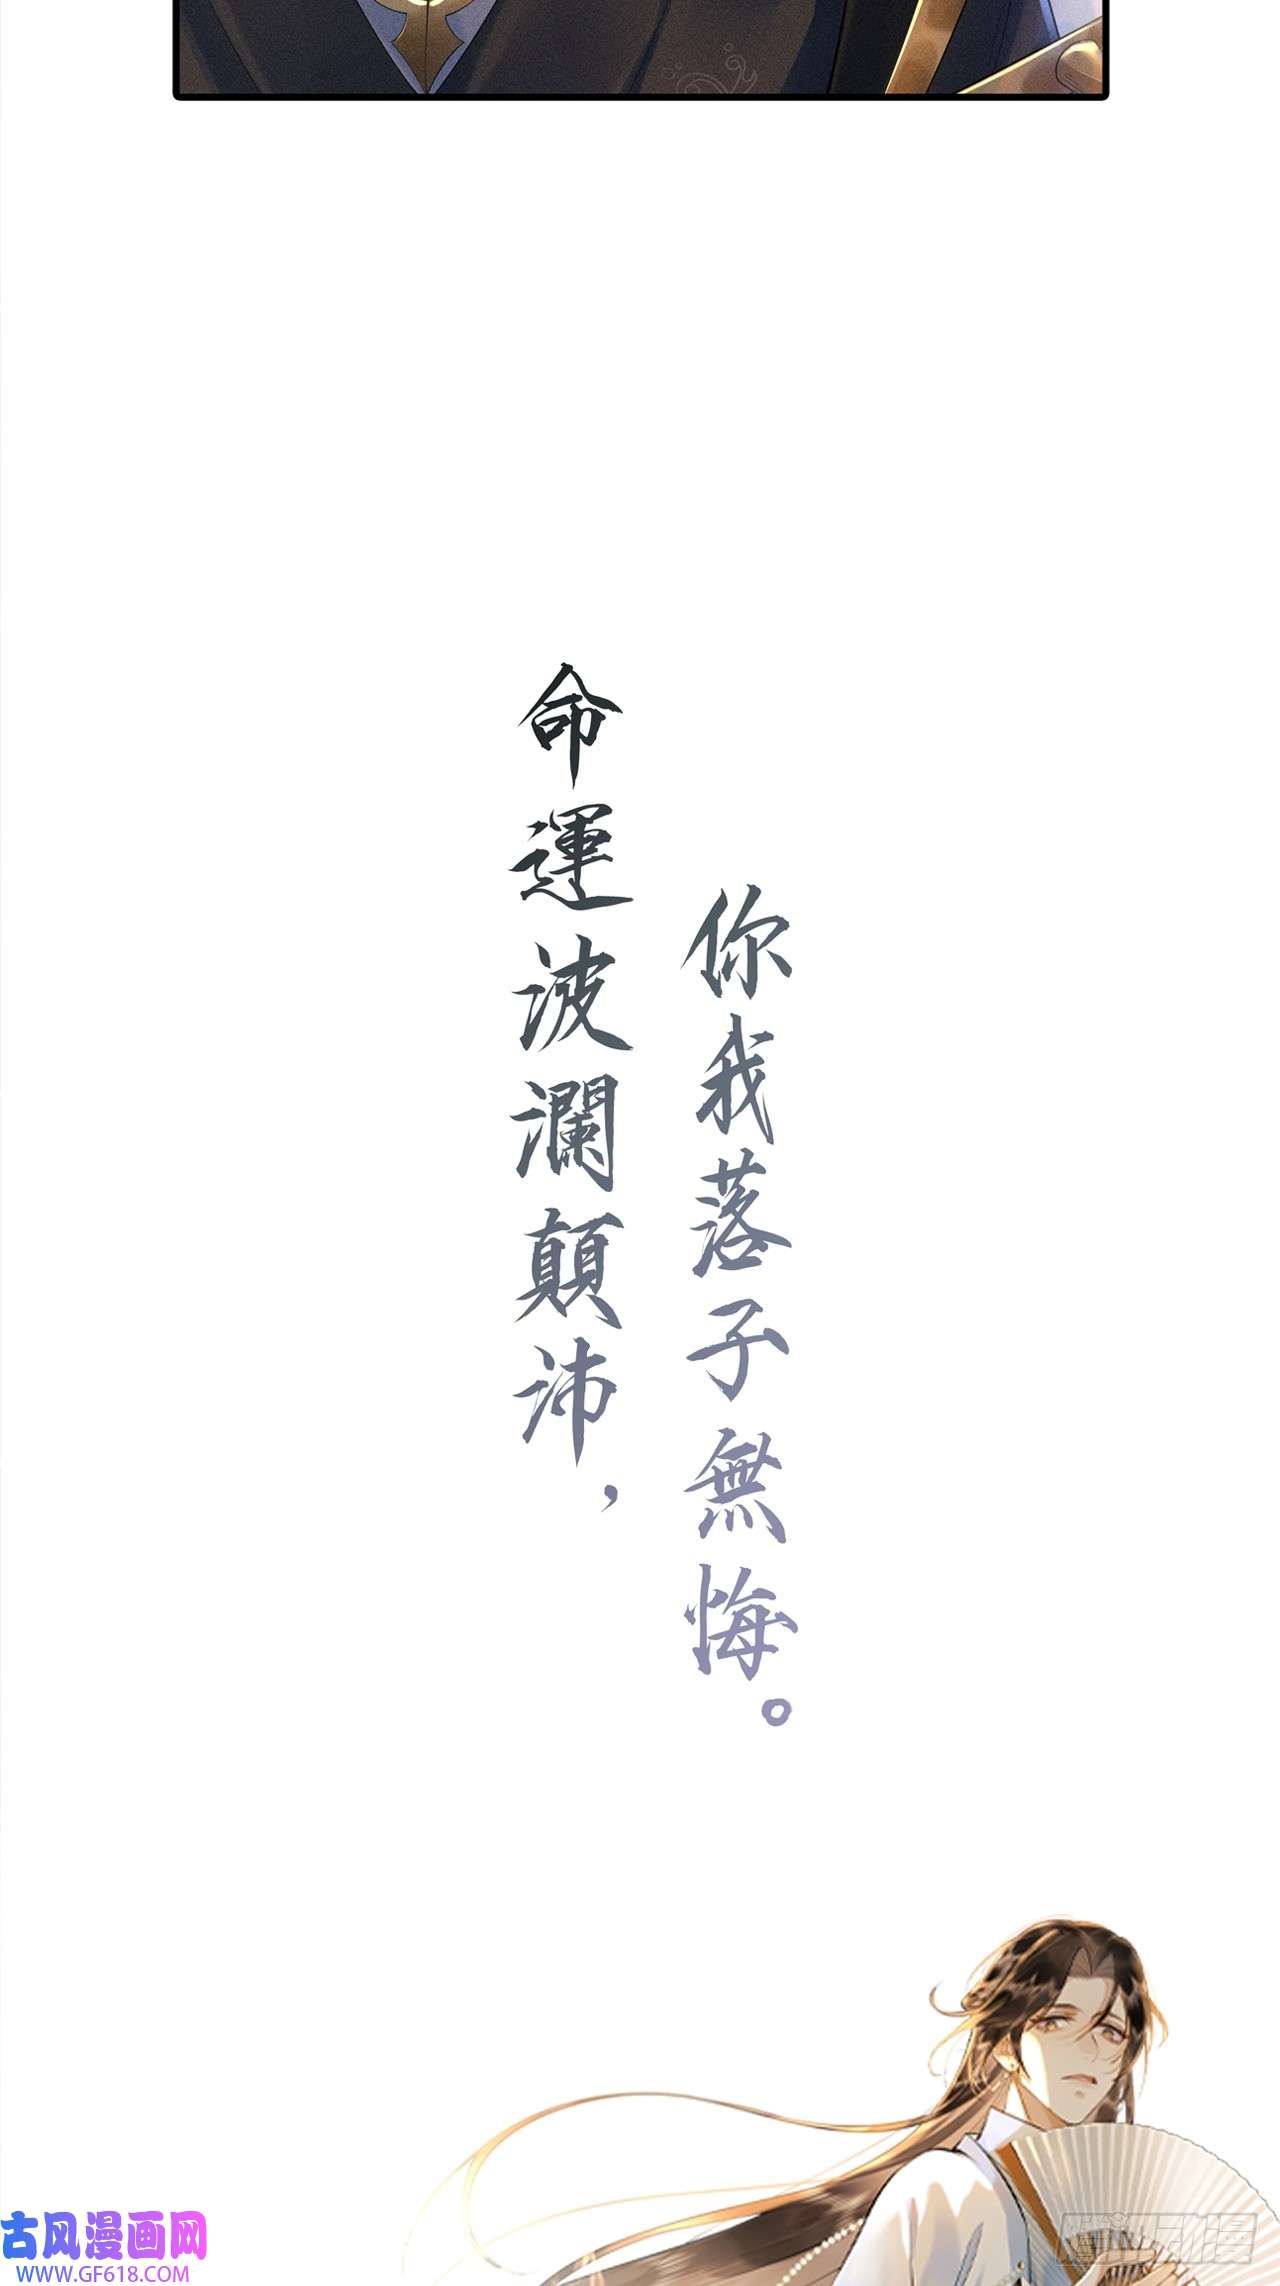 命運波瀾顛沛，
你我落子無悔。
古风漫画网
WWW.GF618.COM